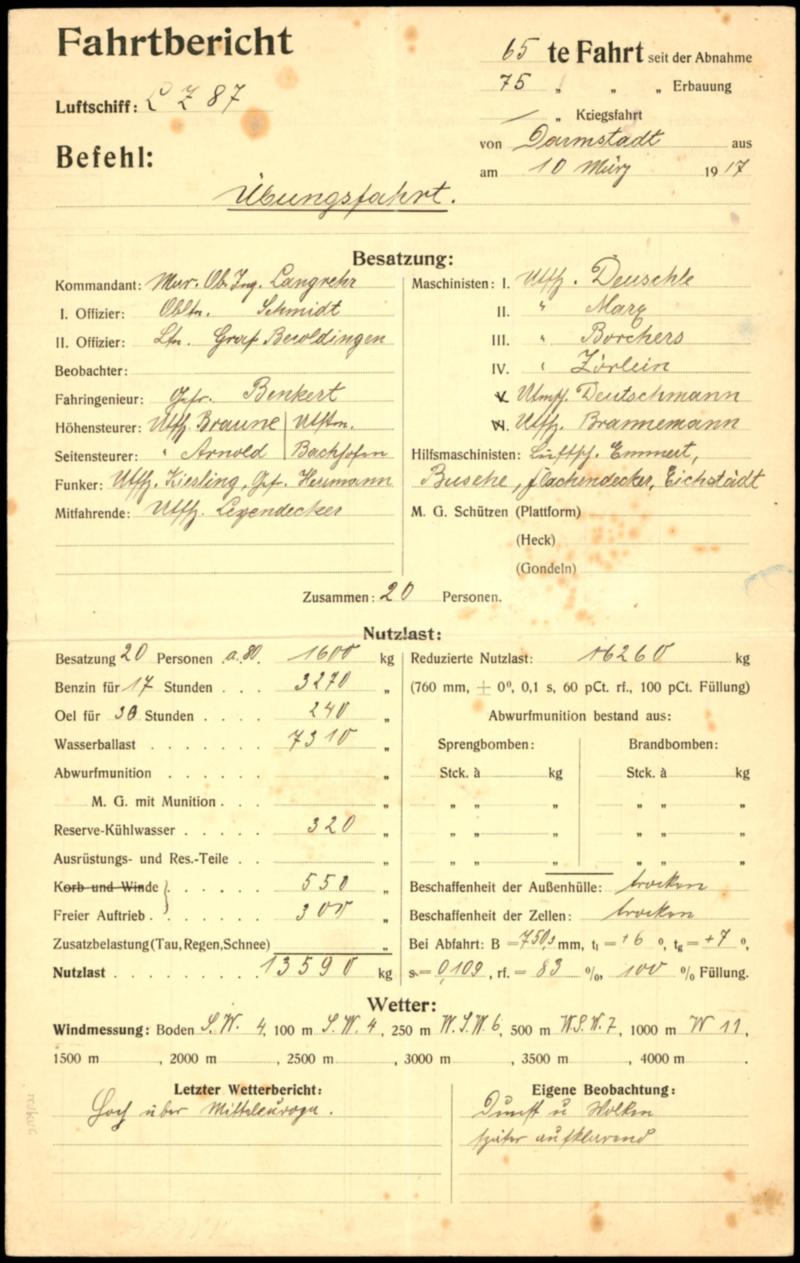 Fahrtbericht
65 te Fahrt seit der Abnahme
75 " " " Erbauung
Luftschiff: L Z 87
— " Kriegsfahrt
von Darmstadt aus
Befehl:
am 10 März 1917
Übungsfahrt.
Besatzung:
Kommandant: Mar. Ob. Ing. Langrehr
Maschinisten: I. Utffz. Deuschle
I. Offizier: Obltn. Schmidt
II. " Marx
II. Offizier: Ltn. Graf Beroldingen
III. " Borchers
Beobachter:
IV. " Zörlein
Fahringenieur: Gefr. Benkert
V. Deutschmann
Höhensteurer: Utffz. Braune
VI. Utffz. Brannemann
Seitensteurer: " Arnold Bachhofen
Hilfsmaschinisten: Luftsch. Emmert,
Funker: Utffz. Kiesling, Gef. Hermann
Busche, Flachendecker, Eichstädt
Mitfahrende: Utffz. Legendecker
M. G. Schützen (Plattform)
(Heck)
(Gondeln)
Zusammen: 20 Personen.
Nutzlast:
Besatzung 20 Personen a. 80. 1600 kg
Reduzierte Nutzlast: 16260 kg
Benzin für 17 Stunden . . . 3270 "
(760 mm, ± 0º, 0,1 s, 60 pCt. rf., 100 pCt. Füllung)
Oel für 30 Stunden . . . . 240 "
Abwurfmunition bestand aus:
Wasserballast . . . . . . . 7310 "
Sprengbomben: Brandbomben:
Abwurfmunition . . . . . . "
Stck. à kg Stck. à kg
M. G. mit Munition . . . "
" " " " " "
Reserve-Kühlwasser . . . . . 320 "
" " " " " "
Ausrüstungs- und Res.-Teile . . "
" " " " " "
Korb und Winde . . . . . . 550 "
Beschaffenheit der Außenhülle: trocken
Freier Auftrieb . . . . . . 300 "
Beschaffenheit der Zellen: trocken
Zusatzbelastung (Tau, Regen, Schnee) "
Bei Abfahrt: B = 750,5 mm, tl = +6 º, tg = +7 º,
Nutzlast . . . . . . . . . 13590 kg
s = 0,109, rf. = 83 %, 100 % Füllung.
Wetter:
Windmessung: Boden S.W. 4, 100 m S.W. 4, 250 m W.S.W. 6, 500 m W.S.W. 7, 1000 m W 11,
1500 m , 2000 m , 2500 m , 3000 m , 3500 m , 4000 m .
Letzter Wetterbericht:
Eigene Beobachtung:
Hoch über Mitteleuropa.
Dunst u Wolken
später aufklarend